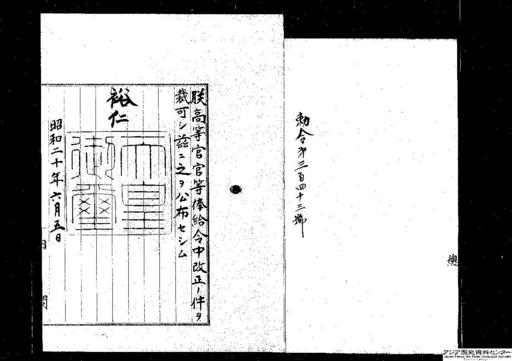 勅令第三百四十三號
朕高等官官等俸給令中改正ノ件ヲ
裁可シ茲ニ之ヲ公布セシム
裕仁
天皇御璽
昭和二十年六月五日
内閣
アジア歴史資料センター